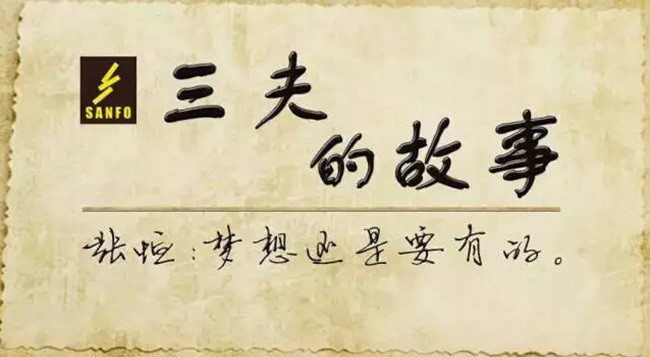 SANFO
三夫
的故事
张恒:梦想还是要有的。